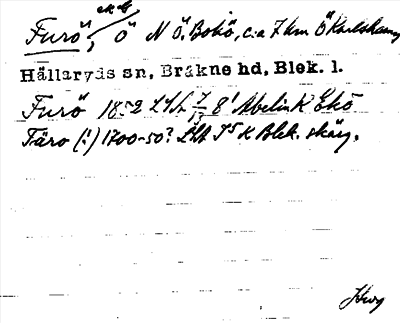 ek. B
Furö, ö N Ö. Bokö, c:a 7 km Ö Karlshamn
Hällaryds sn, Bräkne hd, Blek. l.
Furö 1852 LSA 7/13 8' Abelin K Ekö
Färo (!) 1700-50? LSA J5 K Blek. skärg.